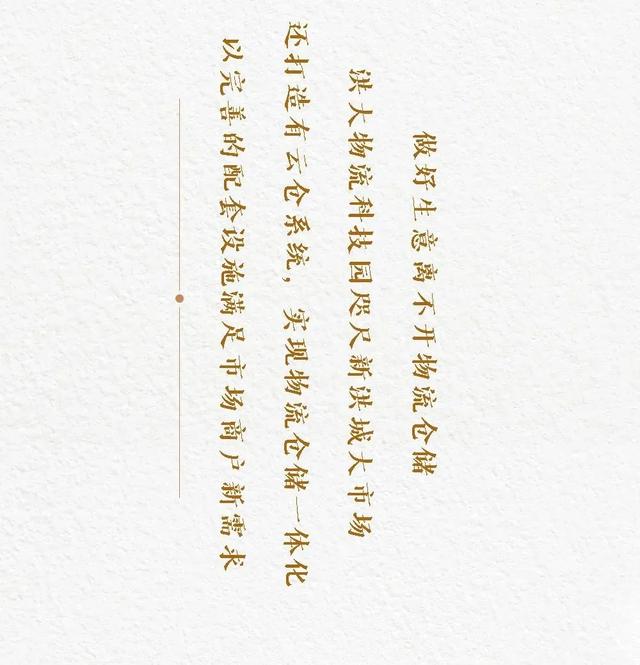 做好生意离不开物流仓储
洪大物流科技园咫尺新洪城大市场
还打造有云仓系统，实现物流仓储一体化
以完善的配套设施满足市场商户新需求